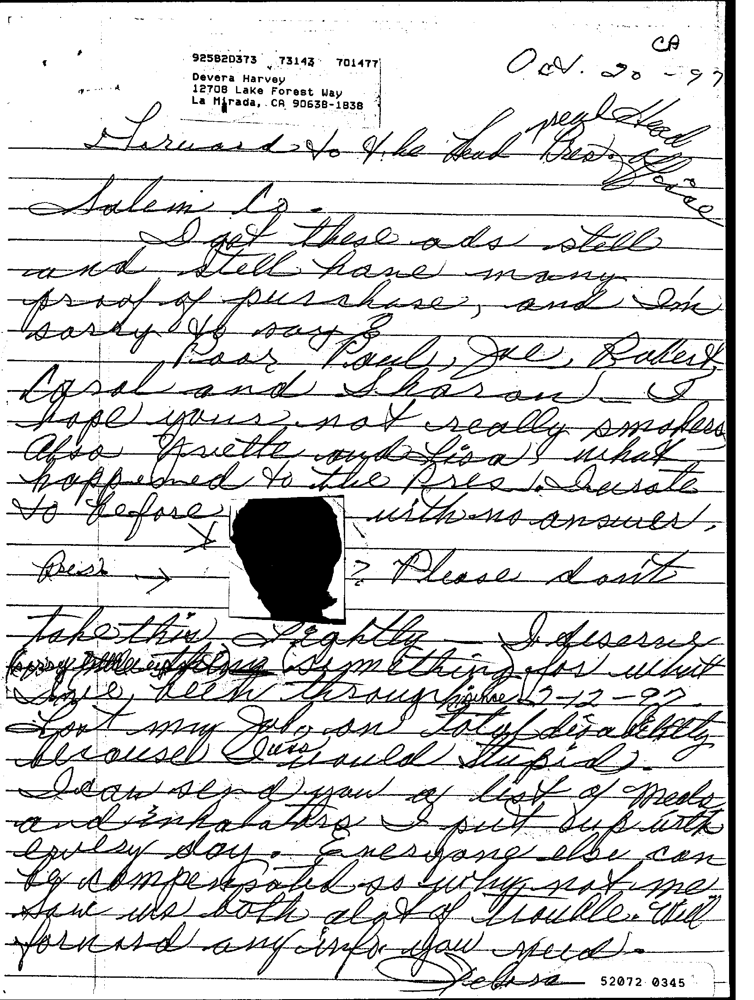 CA
925820373 73143 701477
Devera Harvey
12708 Lake Forest Way
La Mirada, CA 90638-1838
Oct. 20 - 97
Forward to the head Pres. of
real Head Office
Salem Co.
I get these ads still
and still have many
proof of purchase, and I'm
sorry to say
Poor Paul, Joe, Robert,
Carol and Sharon - I
hope your not really smokers
Also Yvette and Lisa, what
happened to the Pres. I wrote
to before with no answer,
Pres. → ? Please don't
take this Lightly - I deserve
something for what
I've been through since 2-12-97.
Lost my Job, on Totaly disability
because I was stupid.
I can send you a list of Meds
and inhalators I put up with
every day. Everyone else can
be compensated so why not me
save us both alot of trouble. Will
forward any info you need.
Debora
52072 0345